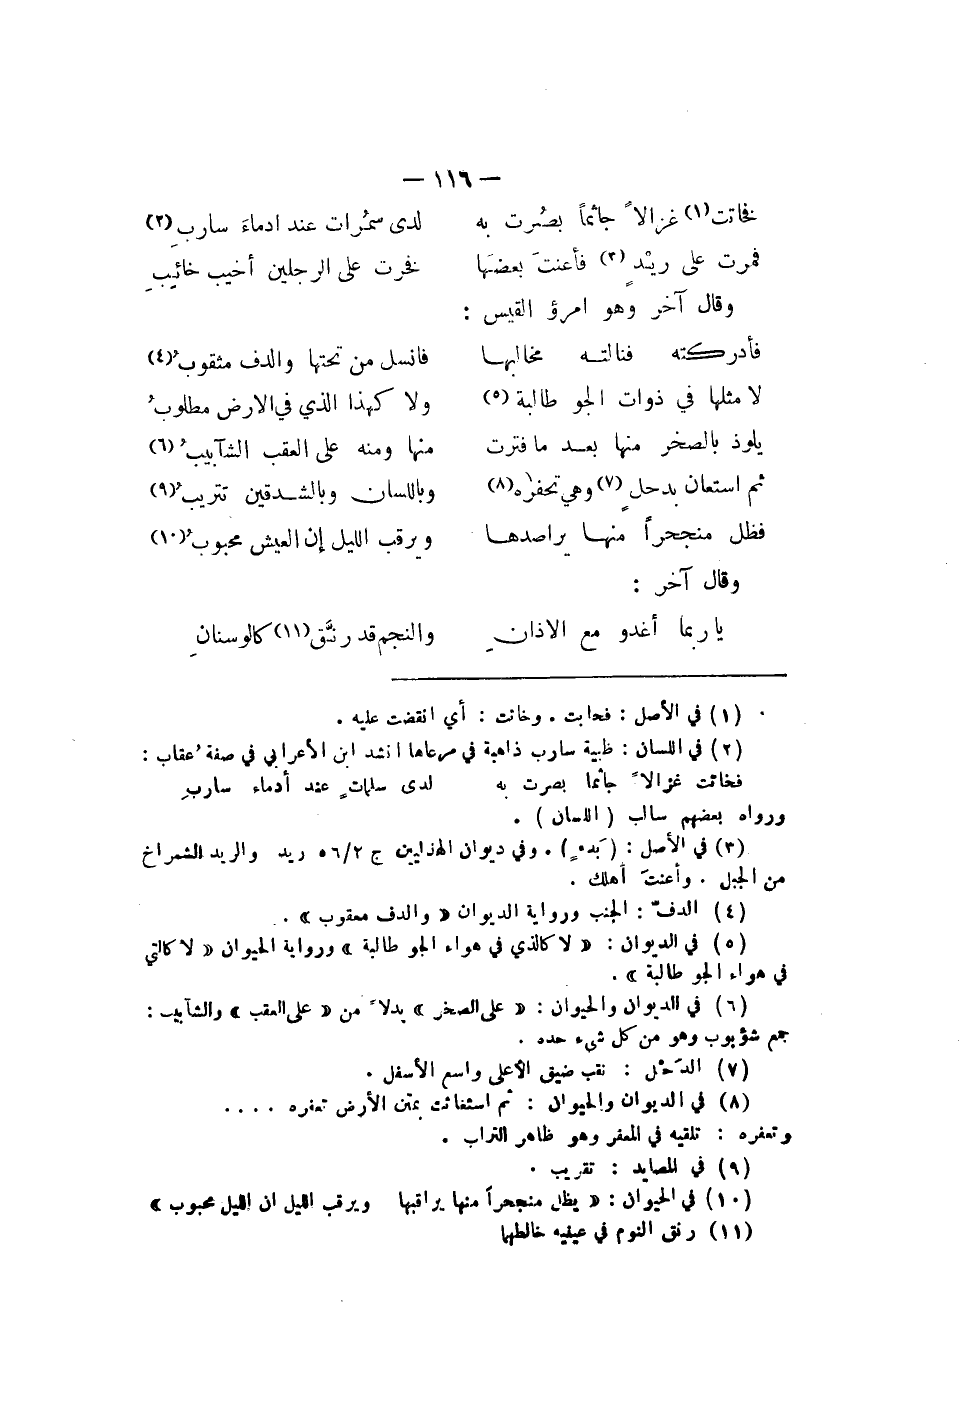 — ١١٦ —
فخاتت(١) غزالاً جاثماً بصُرت به لدى سمُرات عند ادماءَ ساربِ(٢)
فمرت على ريْدٍ (٣) فأعنتَ بعضَها فخرت على الرجلين أخيب خائبِ
وقال آخر وهو امرؤ القيس :
فأدركته فنالته مخالبها فانسل من تحتها والدف مثقوبُ(٤)
لا مثلها في ذوات الجو طالبة (٥) ولا كهذا الذي في الارض مطلوبُ
يلوذ بالصخر منها بعد ما فترت منها ومنه على العقب الشآبيبُ (٦)
ثم استعان بدحلٍ (٧) وهي تحفزه(٨) وباللسان وبالشدقين تتريبُ(٩)
فظل منجحراً منها يراصدها ويرقب الليل إن العيش محبوبُ(١٠)
وقال آخر :
يا ربما أغدو مع الاذانِ والنجم قد رنَّق(١١) كالوسنانِ
(١) في الأصل : فحابت . وخاتت : أي انقضت عليه .
(٢) في اللسان : ظبية سارب ذاهبة في مرعاها انشد ابن الأعرابي في صفة عقاب :
فخاتت غزالاً جاثما بصرت به لدى سلماتٍ عند أدماء ساربِ
ورواه بعضهم سالب ( اللسان ) .
(٣) في الأصل : ( بَدٍ ) . وفي ديوان الهذليين ج ٥٦/٢ ريد والريد الشمراخ
من الجبل . وأعنتَ أهلك .
(٤) الدفّ : الجنب ورواية الديوان « والدف معقوب » .
(٥) في الديوان : « لا كالذي في هواء الجو طالبة » ورواية الحيوان « لا كالتي
في هواء الجو طالبة » .
(٦) في الديوان والحيوان : « على الصخر » بدلاً من « على العقب » والشآبيب :
جمع شؤبوب وهو من كل شيء حده .
(٧) الدَّحْل : نقب ضيق الأعلى واسع الأسفل .
(٨) في الديوان والحيوان : ثم استغاثت بمتن الأرض تعفره ....
وتعفره : تلقيه في العفر وهو ظاهر التراب .
(٩) في المصايد : تقريب .
(١٠) في الحيوان : « يظل منجحراً منها يراقبها ويرقب الليل ان الليل محبوب »
(١١) رنق النوم في عينيه خالطها